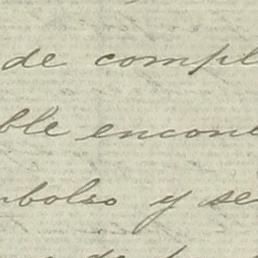 de compl
ble encone
mbolso y se